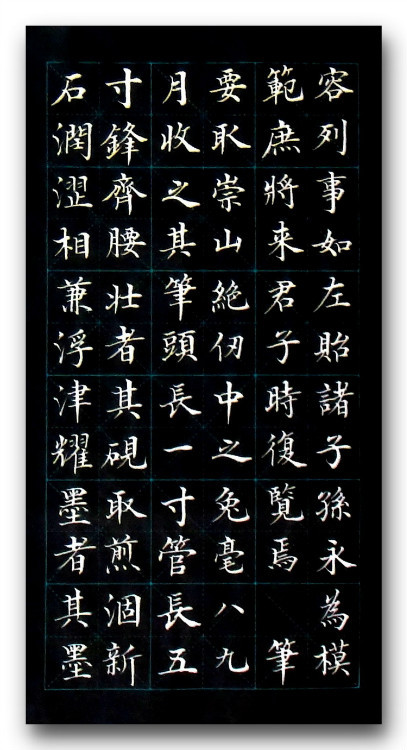 容列事如左貽諸子孫永為模
範庶將来君子時復覽焉　筆
要取崇山絕仞中之兔毫八九
月收之其筆頭長一寸管長五
寸鋒齊腰壮者其硯取煎涸新
石潤澀相兼浮津耀墨者其墨